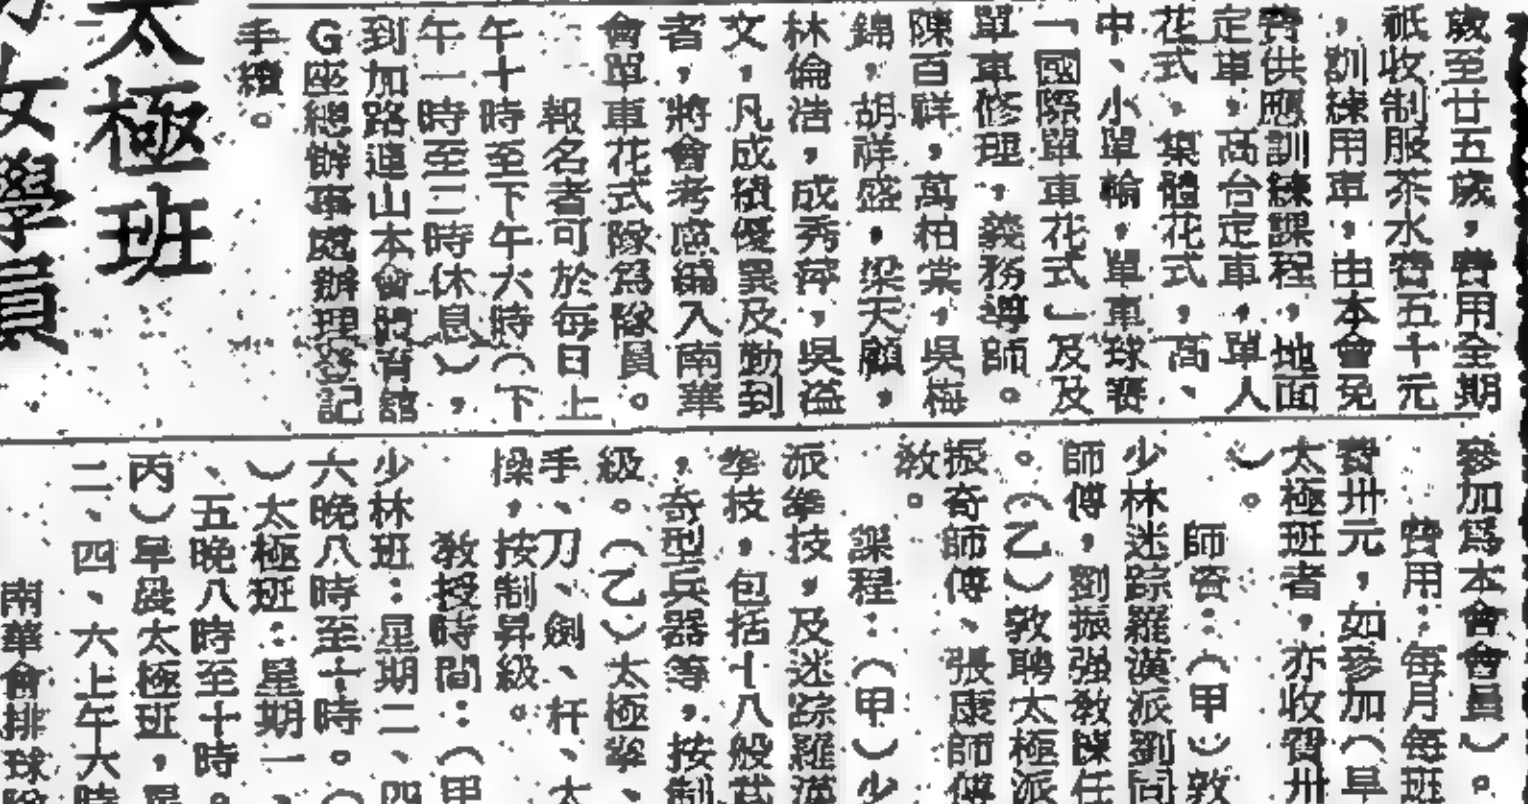 歲至廿五歲，費用全期
祇收制服茶水費五十元
，訓練用車，由本會免
費供應訓練課程，地面
定車，高台定車，單人
花式，集體花式，高、
中、小單輪，單車球賽
「國際單車花式」及及
單車修理，義務導師。
陳百祥，萬柏棠，吳梅
錦，胡祥盛，梁天顧，
林倫浩，成秀萍，吳溢
文，凡成績優異及勤到
者，將會考慮編入南華
會單車花式隊爲隊員。
報名者可於每日上
午十時至下午六時（下
午一時至二時休息），
到加路連山本會體育館
G座總辦事處辦理登記
手續。
太極班
女學員
參加爲本會會員）。
費用：每月每班
費卅元，如參加（早
太極班者，亦收費卅
）。
師資：（甲）敦
少林迷踪羅漢派劉同
師傅，劉振强敎陳任
。（乙）敦聘太極派
振奇師傅、張康師傅
敎。
課程：（甲）少
派拳技，及迷踪羅漢
拳技，包括十八般武
，奇型兵器等，按制
級。（乙）太極拳、
手、刀、劍、杆、太
操，按制昇級。
敎授時間：（甲
少林班：星期二、四
六晚八時至十時。（
）太極班：星期一、
、五晚八時至十時。
丙）早晨太極班，星
二、四、六上午六時
南華會排球隊